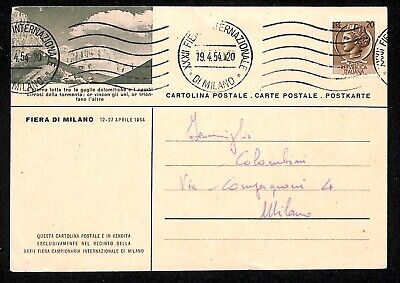 INTERNAZIONALE
.4.54-20
MILANO
XXXII FIERA INTERNAZIONALE
19.4.54-20
DI MILANO
20
REPUBBLICA
ITALIANA
lotta tra le guglie dolomitiche e i nembi
forosi della tormenta: or vincon gli uni, or trion-
fano l'altre
CARTOLINA POSTALE - CARTE POSTALE - POSTKARTE
FIERA DI MILANO 12-27 APRILE 1954
Famiglia
Colombini
Via Compagnoni 4
Milano
QUESTA CARTOLINA POSTALE È IN VENDITA
ESCLUSIVAMENTE NEL RECINTO DELLA
XXXII FIERA CAMPIONARIA INTERNAZIONALE DI MILANO